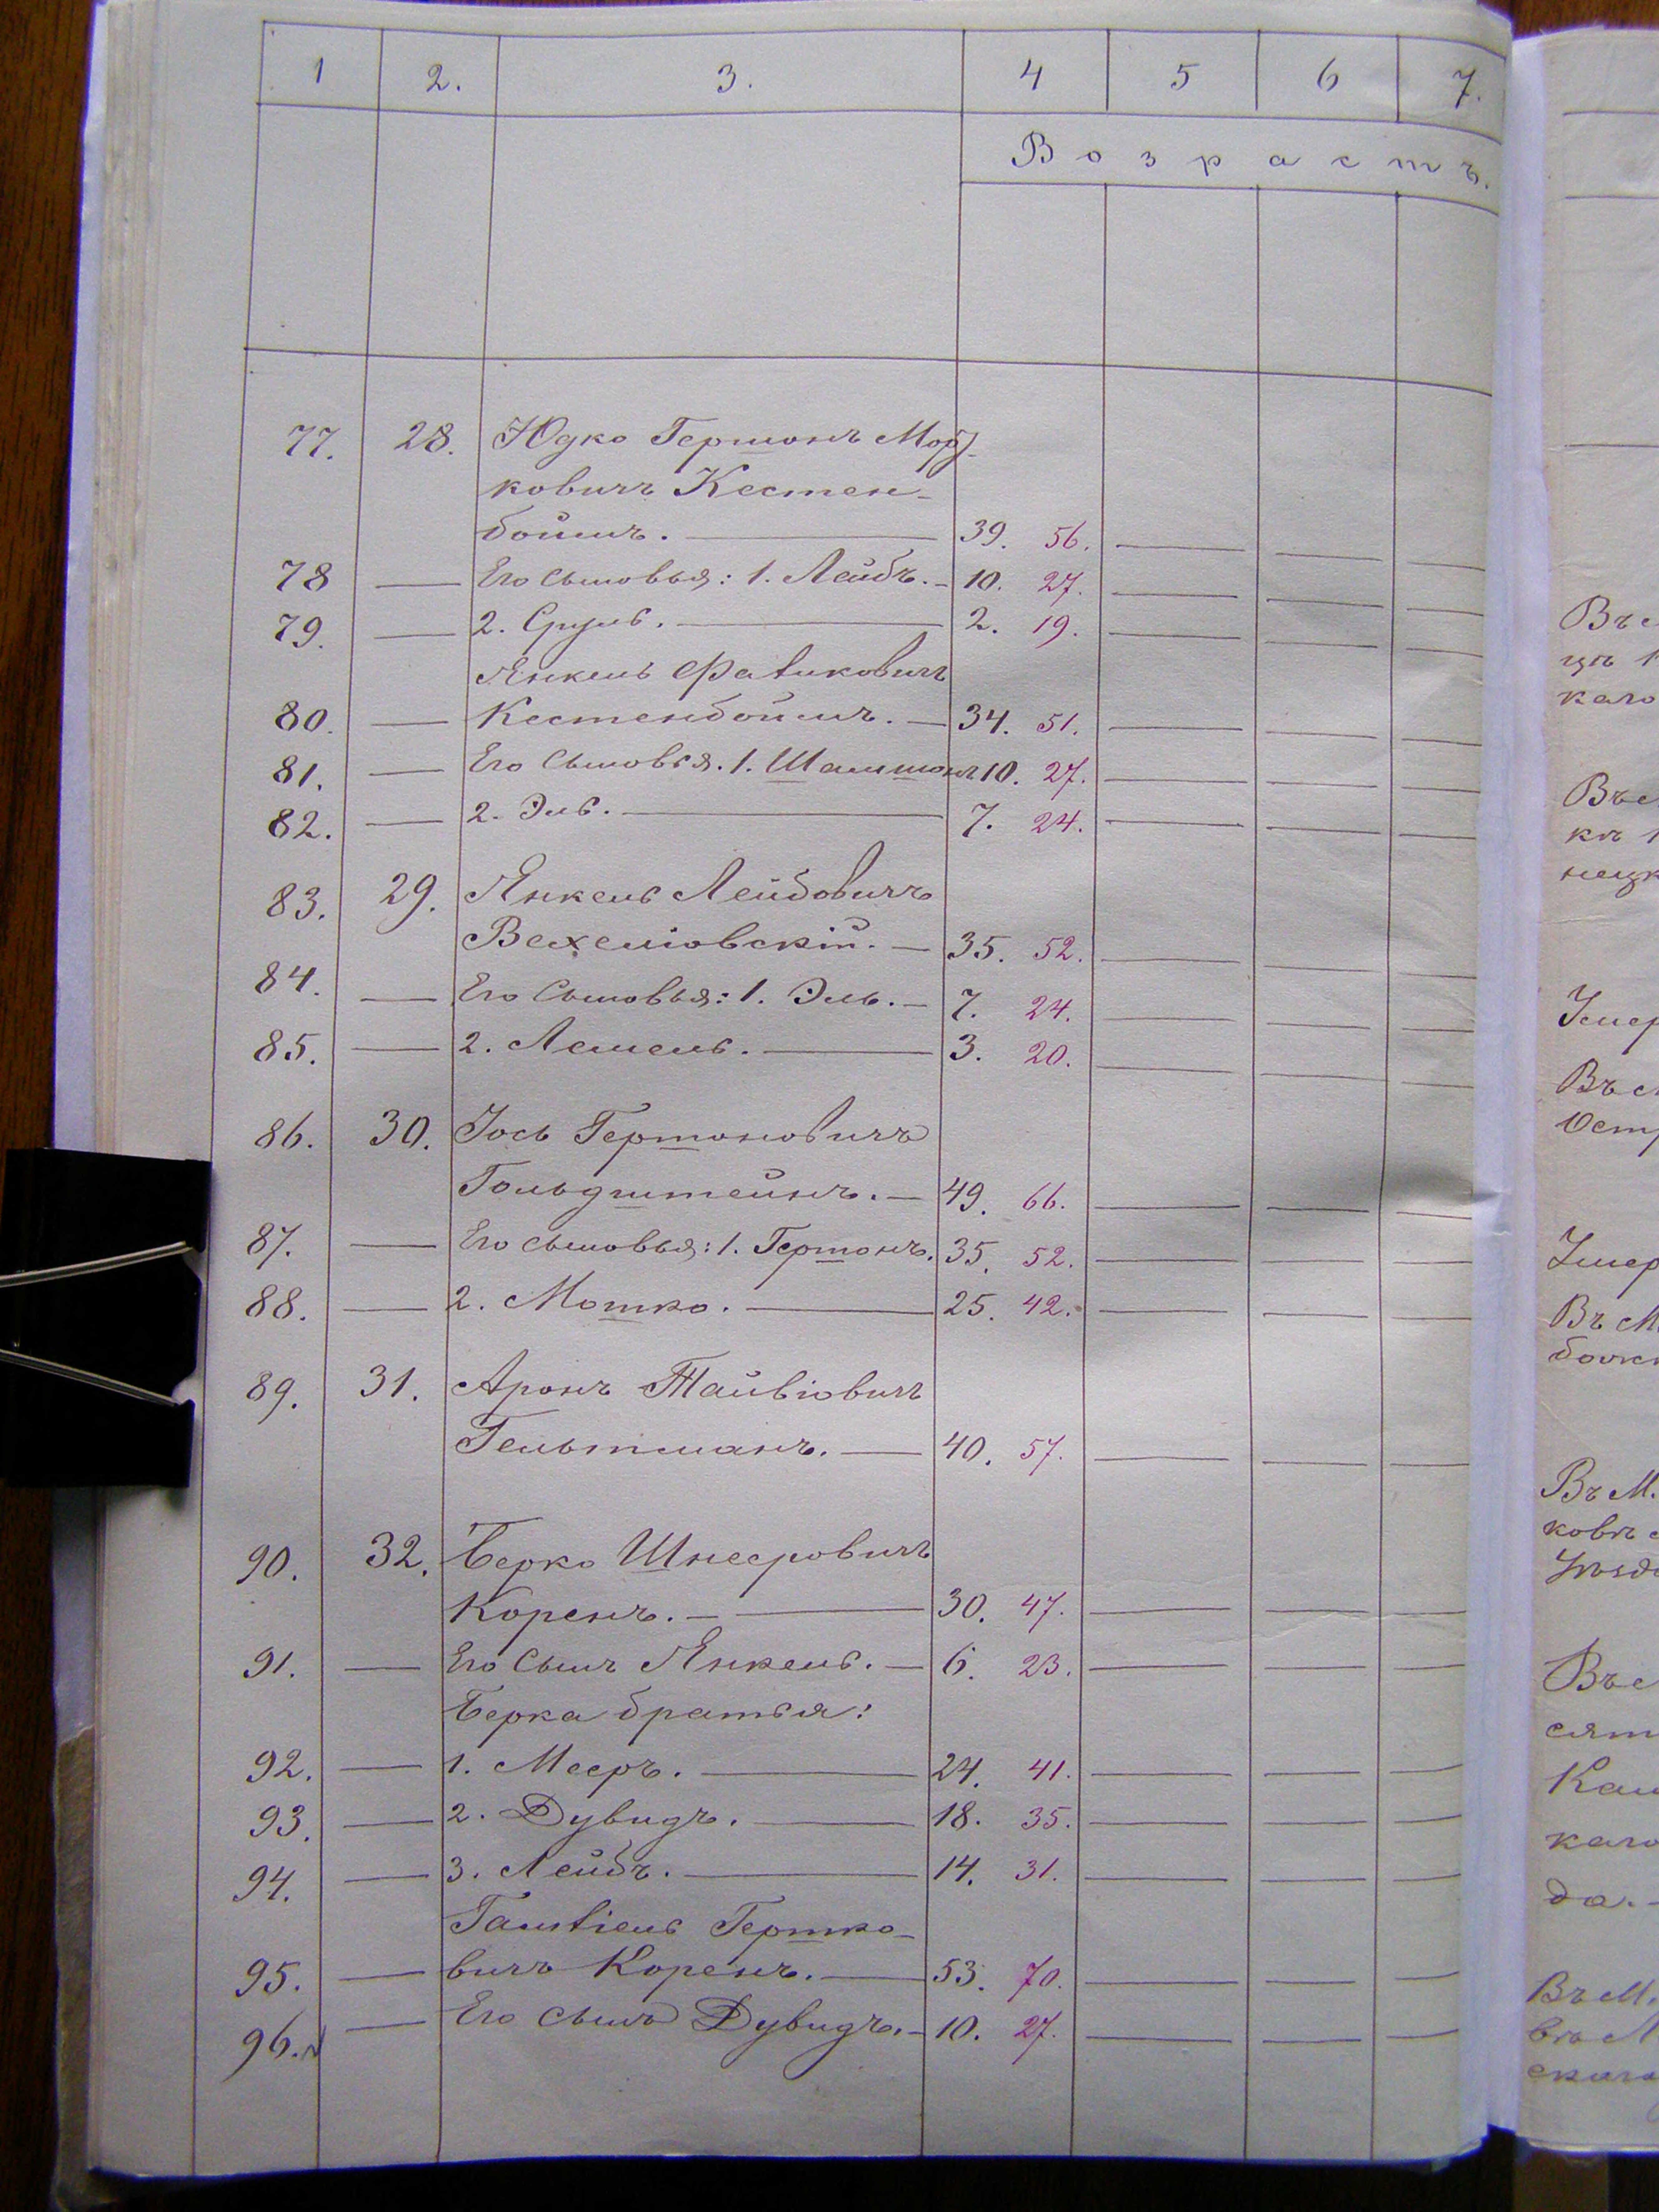 1 2. 3. 4 5 6 7.
Возрастъ.
77. 28. Юдко Гершонъ Морд-
ковичъ Кестен-
боймъ. — 39. 56. — — —
78 — Его сыновья: 1. Лейбъ. — 10. 27. — — —
79. — 2. Сруль. — 2. 19. — — —
Янкель Фавиковичъ
80. — Кестенбоймъ. — 34. 51. — — —
81. — Его сыновья. 1. Шамшонъ 10. 27. — — —
82. — 2. Эль. — 7. 24. — — —
83. 29. Янкель Лейбовичъ
35. 52. — — —
84. — Его сыновья: 1. Эль. — 7. 24. — — —
85. — 2. Лемель. — 3. 20. — — —
86. 30. Іось Гершоновичъ
Гольдштейнъ. — 49. 66. — — —
87. — Его сыновья: 1. Гершонъ. 35. 52. — — —
88. — 2. Мошко. — 25. 42. — — —
89. 31. Аронъ Тайвіовичъ
Гельтманъ. — 40. 57. — — —
90. 32. Берко Шнееровичъ
Коренъ. — — 30. 47. — — —
91. — Его сынъ Янкель. — 6. 23. — — —
Берка братья:
92. — 1. Мееръ. — 24. 41. — — —
93. — 2. Дувидъ. — 18. 35. — — —
94. — 3. Лейбъ. — 14. 31. — — —
Гамліель Гершко-
95. — вичъ Коренъ. — 53. 70. — — —
96. — Его сынъ Дувидъ. — 10. 27. — — —